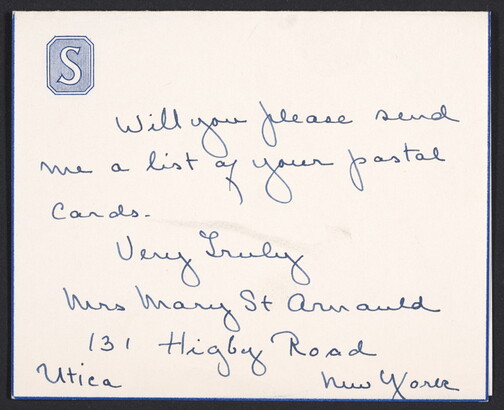 S
Will you please send
me a list of your postal
cards.
Very Truly
Mrs Mary St Arnauld
131 Higby Road
Utica New York